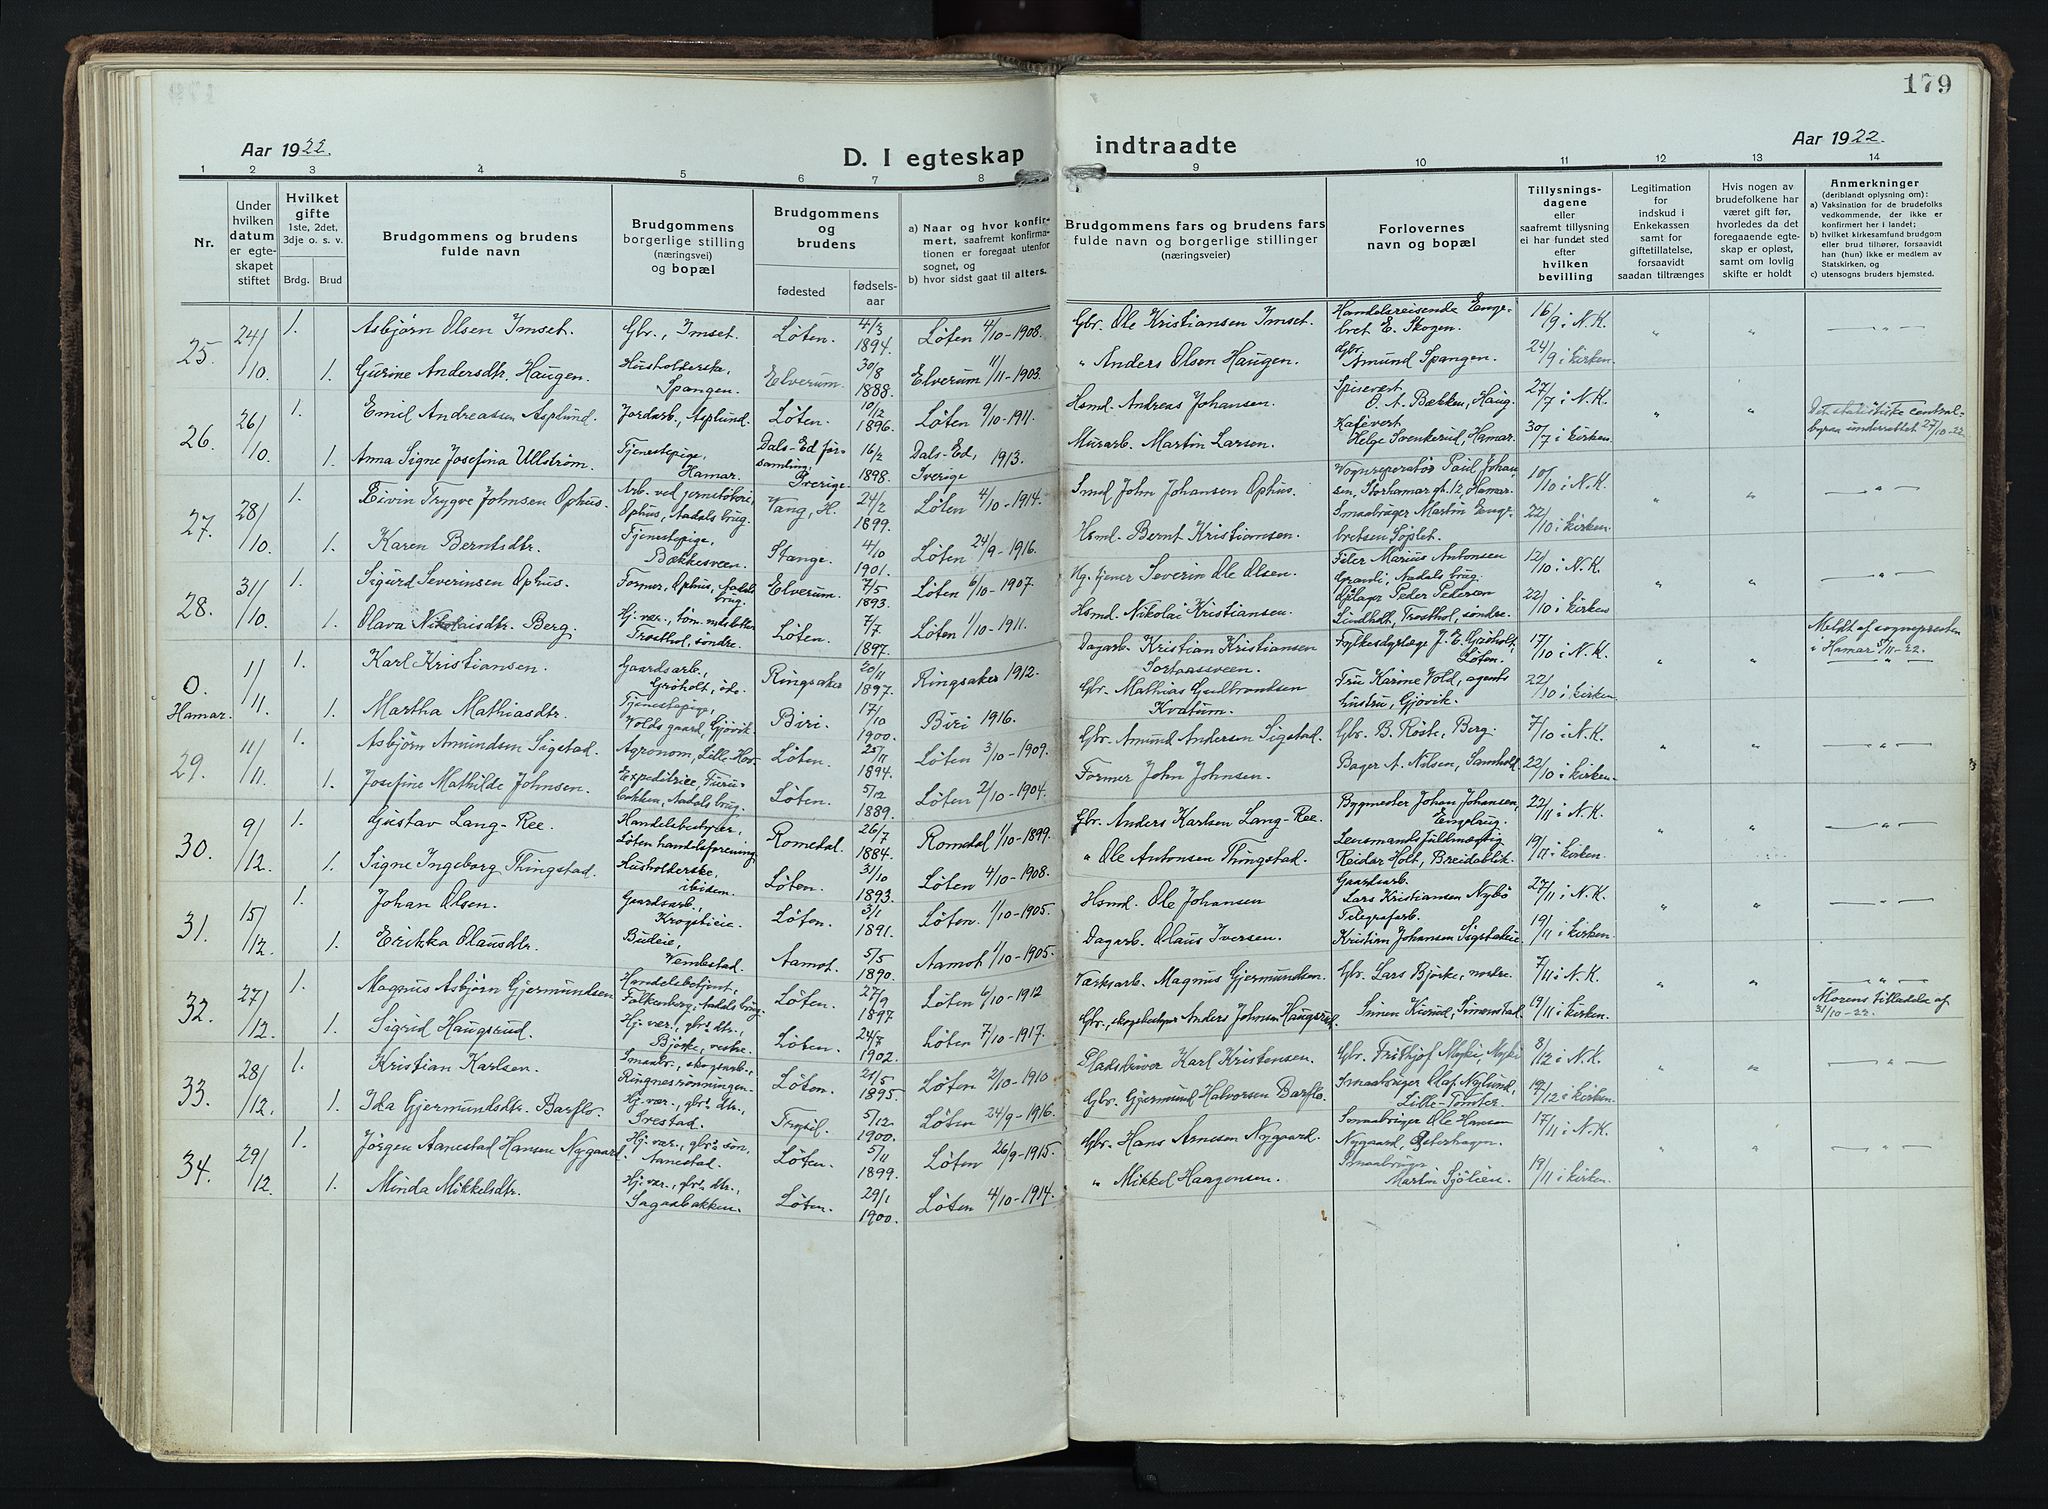 179
Aar 1922.
D. I egteskap indtraadte
Aar 1922.
1 2 3 4 5 6 7 8 9 10 11 12 13 14
Nr.
Under hvilken datum er egteskapet stiftet
Hvilket gifte 1ste, 2det, 3dje o. s. v.
Brdg. Brud
Brudgommens og brudens fulde navn
Brudgommens borgerlige stilling (næringsvei) og bopæl
Brudgommens og brudens
fødested
fødsels-aar
a) Naar og hvor konfirmert, saafremt konfirmationen er foregaat utenfor sognet, og
b) hvor sidst gaat til alters.
Brudgommens fars og brudens fars fulde navn og borgerlige stillinger (næringsveier)
Forlovernes navn og bopæl
Tillysningsdagene eller saafremt tillysning ei har fundet sted efter hvilken bevilling
Legitimation for indskud i Enkekassen samt for giftetillatelse, forsaavidt saadan tiltrænges
Hvis nogen av brudefolkene har været gift før, hvorledes da det foregaaende egteskap er opløst, samt om lovlig skifte er holdt
Anmerkninger (deriblandt oplysning om):
a) Vaksination for de brudefolks vedkommende, der ikke er konfirmert her i landet;
b) hvilket kirkesamfund brudgom eller brud tilhører, forsaavidt han (hun) ikke er medlem av Statskirken, og
c) utensogns bruders hjemsted.
25. 24/10 1. Asbjørn Olsen Imset. Gbr., Imset. Løten. 4/3 1894. Løten 4/10-1908. Gbr. Ole Kristiansen Imset. Handelsreisende Engebret E. Skogen. 16/9 i N.K.
1. Gurine Andersdtr. Haugen. Husholderske, Spangen. Elverum. 30/8 1888. Elverum 11/11-1903. " Anders Olsen Haugen. Gbr. Amund Spangen. 24/9 i kirken.
26. 26/10 1. Emil Andreassen Asplund. Jordarb., Asplund. Løten. 10/12 1896. Løten 9/10-1911. Hsmd. Andreas Johansen. Spisevert O. A. Bækken, Haug. 27/7 i N.K. Det statistiske centralbyraa underrettet 27/10-22
1. Anna Signe Josefina Ullström. Tjenestepige, Hamar. Dals-Ed forsamling, Sverige. 16/2 1898. Dals-Ed, Sverige 1913. Murarb. Martin Larsen. Kafévert Helge Svenkerud, Hamar. 30/7 i kirken.
27. 28/10 1. Eivin Trygve Johnsen Ophus. Arb. ved jernstøberi, Ophus, Aadals brug. Vang, H. 24/2 1899. Løten 4/10-1914. Smed John Johansen Ophus. Vognreperatør Paul Johansen, Storhamar gt. 12, Hamar. 10/10 i N.K.
1. Karen Berntsdtr. Tjenestepige, Bækkesveen. Stange. 4/10 1901. Løten 24/9-1916. Hsmd. Bernt Kristiansen. Smaabruger Martin Engebretsen Sjølet. 22/10 i kirken.
28. 31/10 1. Sigurd Severinsen Ophus. Former, Ophus, Aadals brug. Elverum. 7/5 1893. Løten 6/10-1907. Severin Ole Olsen. Filer Marius Antonsen Grandi, Aadals brug. 12/10 i N.K.
1. Olava Nikolaisdtr. Berg. Trosthol, søndre. Løten. 7/7 1897. Løten 1/10-1911. Hsmd. Nikolai Kristiansen. Peder Pedersen Lindholt, Trosthol, søndre. 22/10 i kirken
0. Hamar. 1/11 1. Karl Kristiansen. Gaardsarb., Grøholt, øde. Ringsaker 20/11 1897. Ringsaker 1912. Dagarb. Kristian Kristiansen Sortaassveen. Fylkesdyrlæge J. E. Grøholt, Løten. 17/10 i N.K. Meldt af sognepresten i Hamar 3/11-22.
1. Martha Mathiasdtr. Tjenestepige, Volds gaard, Gjøvik. Biri. 17/10 1900. Biri 1916. Gbr. Mathias Gulbrandsen Kvatum. Fru Karine Vold, agents hustru, Gjøvik. 22/10 i kirken.
29. 11/11 1. Asbjørn Amundsen Sigstad. Agronom, Lille-Hov Løten. 25/11 1894. Løten 3/10-1909. Gbr. Amund Andersen Sigstad. Gbr. B. Røste, Berg. 7/10 i N.K.
1. Josefine Mathilde Johnsen. Expeditrice, Furubakken, Aadals brug. Løten. 5/12 1889. Løten 2/10-1904. Former John Johnsen. Bager A. Nilsen, Samhold. 22/10 i kirken.
30. 9/12 1. Gustav Lang-Ree. Handelsbestyrer, Løten handelsforening Romedal. 26/7 1884. Romedal 1/10-1899. Gbr. Anders Karlsen Lang-Ree. Bygmester Johan Johansen, Englaug. 22/11 i N.K.
1. Signe Ingeborg Thingstad. Husholderske, ibidem. Løten. 31/10 1893. Løten 4/10-1908. " Ole Antonsen Thingstad. Lensmandsfuldmægtig Reidar Holt, Breidablik. 19/11 i kirken.
31. 15/12 1. Johan Olsen. Gaardsarb., Krogstieie. Løten. 3/1 1891. Løten. 1/10-1905. Hsmd. Ole Johansen Gaardsarb. Lars Kristiansen Nybø 27/11 i N.K.
1. Erikka Olausdtr. Budeie, Vembestad. Aamot. 5/5 1890. Aamot 1/10-1905. Dagarb. Olaus Iversen. Telegrafarb. Kristian Johansen Sigstadeie 19/11 i kirken.
32. 27/12 1. Magnus Asbjørn Gjermundsen Handelsbetjent, Falkenberg, Aadals brug Løten. 27/9 1897 Løten 6/10-1912 Værksarb. Magnus Gjermundsen. Gbr. Lars Bjørke, nordre. 7/11 i N.K.
1. Sigrid Haugsrud. Hj. vær., gbrs dtr., Bjørke, vestre. Løten. 24/8 1902. Løten 7/10-1917. Gbr., skogbestyrer Anders Johnsen Haugsrud. Kurud, Simenstad. 19/11 i kirken. Morens tilladelse af 31/10-22.
33. 28/12 1. Kristian Karlsen. Smaabr., skogsarb., Ringnesrønningen. Løten. 21/5 1895. Løten 2/10-1910 Pladsdriver Karl Kristensen. Gbr. Frithjof Myki, Myki 8/12 i N.K.
1. Ida Gjermundsdtr. Barflo. Hj. vær., gbrs dtr., Grestad. Trysil. 5/12 1900. Løten 24/9-1916. Gbr. Gjermund Halvorsen Barflo. Smaabruger Olaf Nylund, Lille-Tomter. 12/12 i kirken.
34. 29/12 1. Jörgen Aanestad Hansen Nygaard. Hj. vær., gbrs søn, Aanestad. Løten. 5/11 1899. Løten 26/9-1915. Gbr. Hans Arnesen Nygaard. Smaabruger Ole Hansen Nygaard, Østerhagen. 17/11 i N.K.
1. Minda Mikkelsdtr. Hj. vær., gbrs dtr., Sagaabakken. Løten. 29/1 1900. Løten 4/10-1914. " Mikkel Haagensen. Smaabruger Martin Sjølien. 19/11 i kirken.